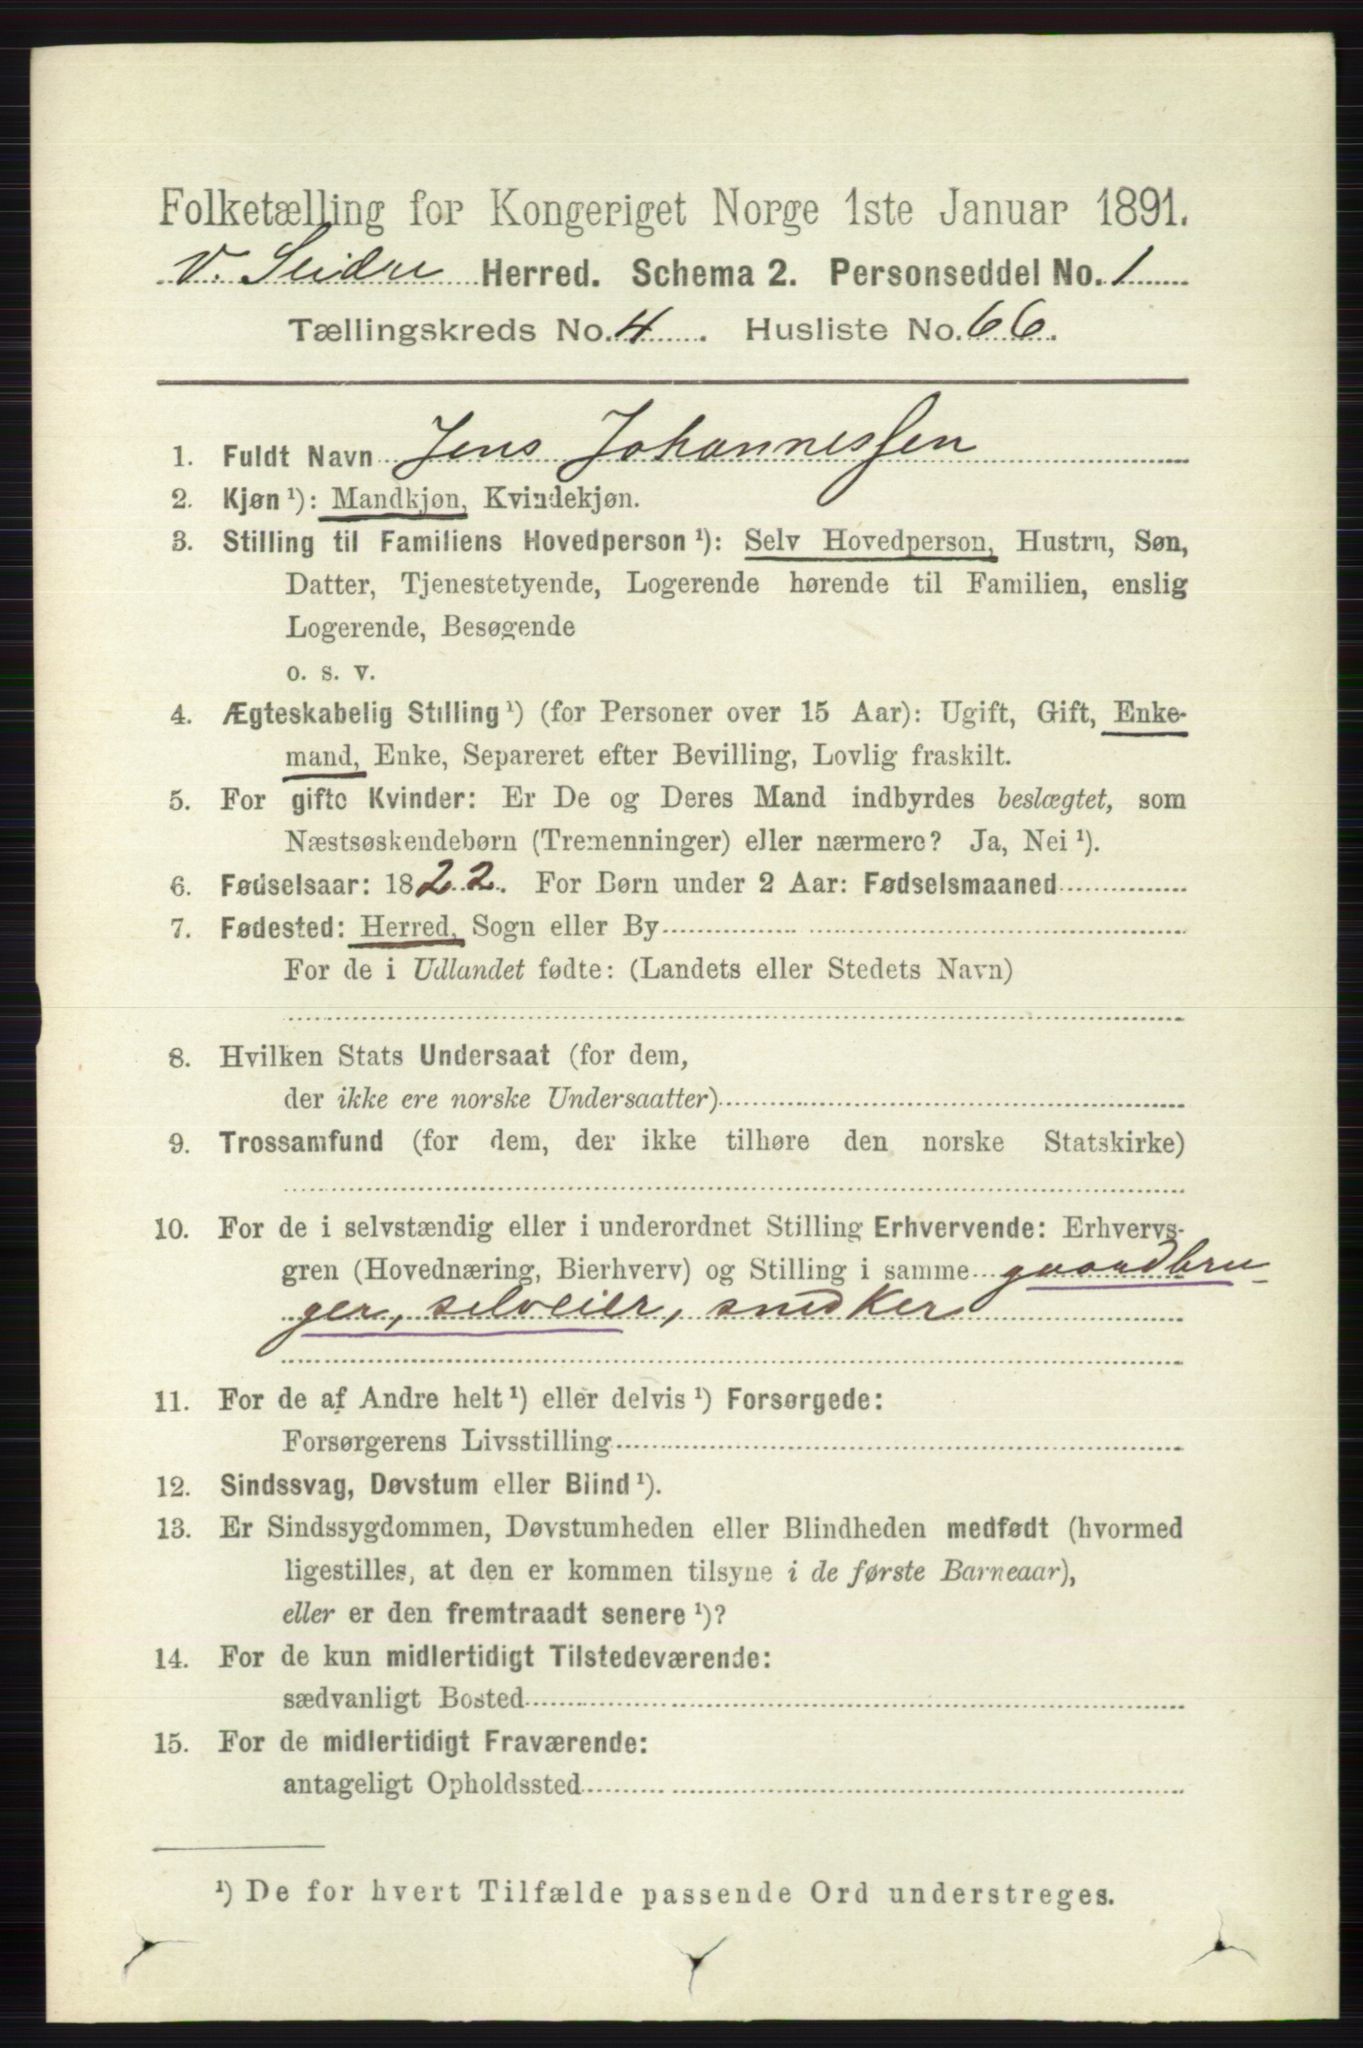 Folketælling for Kongeriget Norge 1ste Januar 1891.
V. Slidre Herred. Schema 2. Personseddel No. 1
Tællingskreds No. 4. Husliste No. 66.
1. Fuldt Navn Jens Johannessen
2. Kjøn ¹): Mandkjøn, Kvindekjøn.
3. Stilling til Familiens Hovedperson ¹): Selv Hovedperson, Hustru, Søn,
Datter, Tjenestetyende, Logerende hørende til Familien, enslig
Logerende, Besøgende
o. s. v.
4. Ægteskabelig Stilling ¹) (for Personer over 15 Aar): Ugift, Gift, Enke-
mand, Enke, Separeret efter Bevilling, Lovlig fraskilt.
5. For gifte Kvinder: Er De og Deres Mand indbyrdes beslægtet, som
Næstsøskendebørn (Tremenninger) eller nærmere? Ja, Nei ¹).
6. Fødselsaar: 1822. For Børn under 2 Aar: Fødselsmaaned
7. Fødested: Herred, Sogn eller By
For de i Udlandet fødte: (Landets eller Stedets Navn)
8. Hvilken Stats Undersaat (for dem,
der ikke ere norske Undersaatter)
9. Trossamfund (for dem, der ikke tilhøre den norske Statskirke)
10. For de i selvstændig eller i underordnet Stilling Erhvervende: Erhvervs-
gren (Hovednæring, Bierhverv) og Stilling i samme gaardbru-
ger, selveier, snedker
11. For de af Andre helt ¹) eller delvis ¹) Forsørgede:
Forsørgerens Livsstilling
12. Sindssvag, Døvstum eller Blind ¹).
13. Er Sindssygdommen, Døvstumheden eller Blindheden medfødt (hvormed
ligestilles, at den er kommen tilsyne i de første Barneaar),
eller er den fremtraadt senere ¹)?
14. For de kun midlertidigt Tilstedeværende:
sædvanligt Bosted
15. For de midlertidigt Fraværende:
antageligt Opholdssted
¹) De for hvert Tilfælde passende Ord understreges.